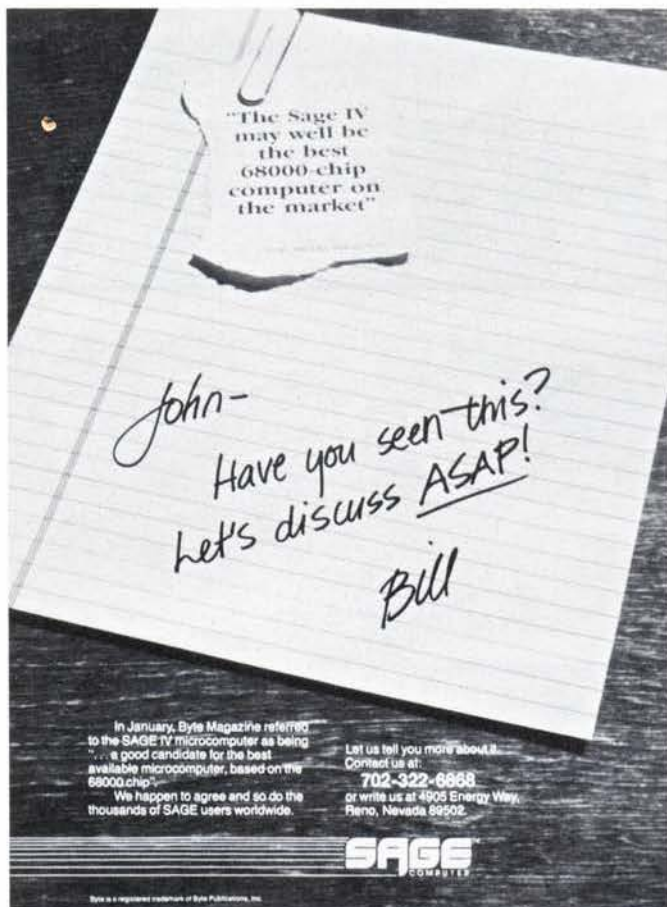 "The Sage IV
may well be
the best
68000-chip
computer on
the market"
John-
Have you seen this?
Let's discuss ASAP!
Bill
In January, Byte Magazine referred
to the SAGE IV microcomputer as being
". . . a good candidate for the best
available microcomputer, based on the
68000 chip".
We happen to agree and so do the
thousands of SAGE users worldwide.
Let us tell you more about it.
Contact us at:
702-322-6868
or write us at 4905 Energy Way,
Reno, Nevada 89502.
SAGE
COMPUTER
Byte is a registered trademark of Byte Publications, Inc.